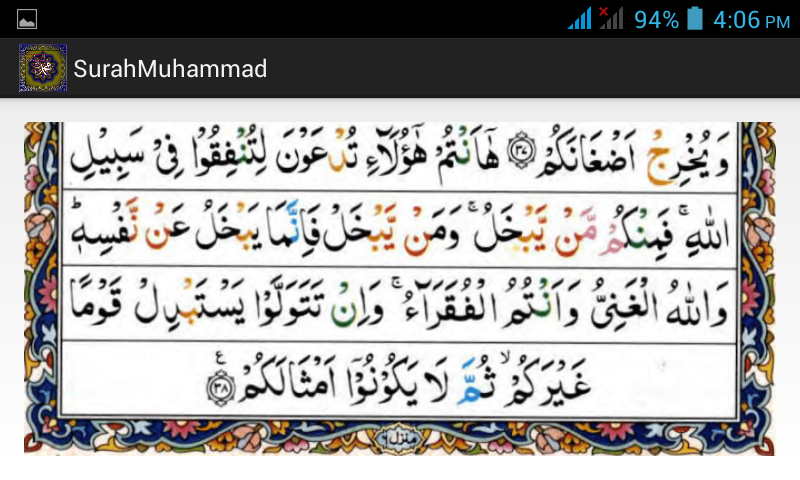 94% 4:06 PM
SurahMuhammad
وَيُخْرِجْ اَضْغَانَكُمْ ﴿۳۷﴾ هٰۤاَنْتُمْ هٰۤؤُلَآءِ تُدْعَوْنَ لِتُنْفِقُوْا فِيْ سَبِيْلِ
اللّٰهِ ۚ فَمِنْكُمْ مَّنْ يَّبْخَلُ ۚ وَمَنْ يَّبْخَلْ فَاِنَّمَا يَبْخَلُ عَنْ نَّفْسِهٖ ؕ
وَاللّٰهُ الْغَنِيُّ وَاَنْتُمُ الْفُقَرَآءُ ۚ وَاِنْ تَتَوَلَّوْا يَسْتَبْدِلْ قَوْمًا
غَيْرَكُمْ ۙ ثُمَّ لَا يَكُوْنُوْۤا اَمْثَالَكُمْ ﴿۳۸﴾ ع
منزل ٦